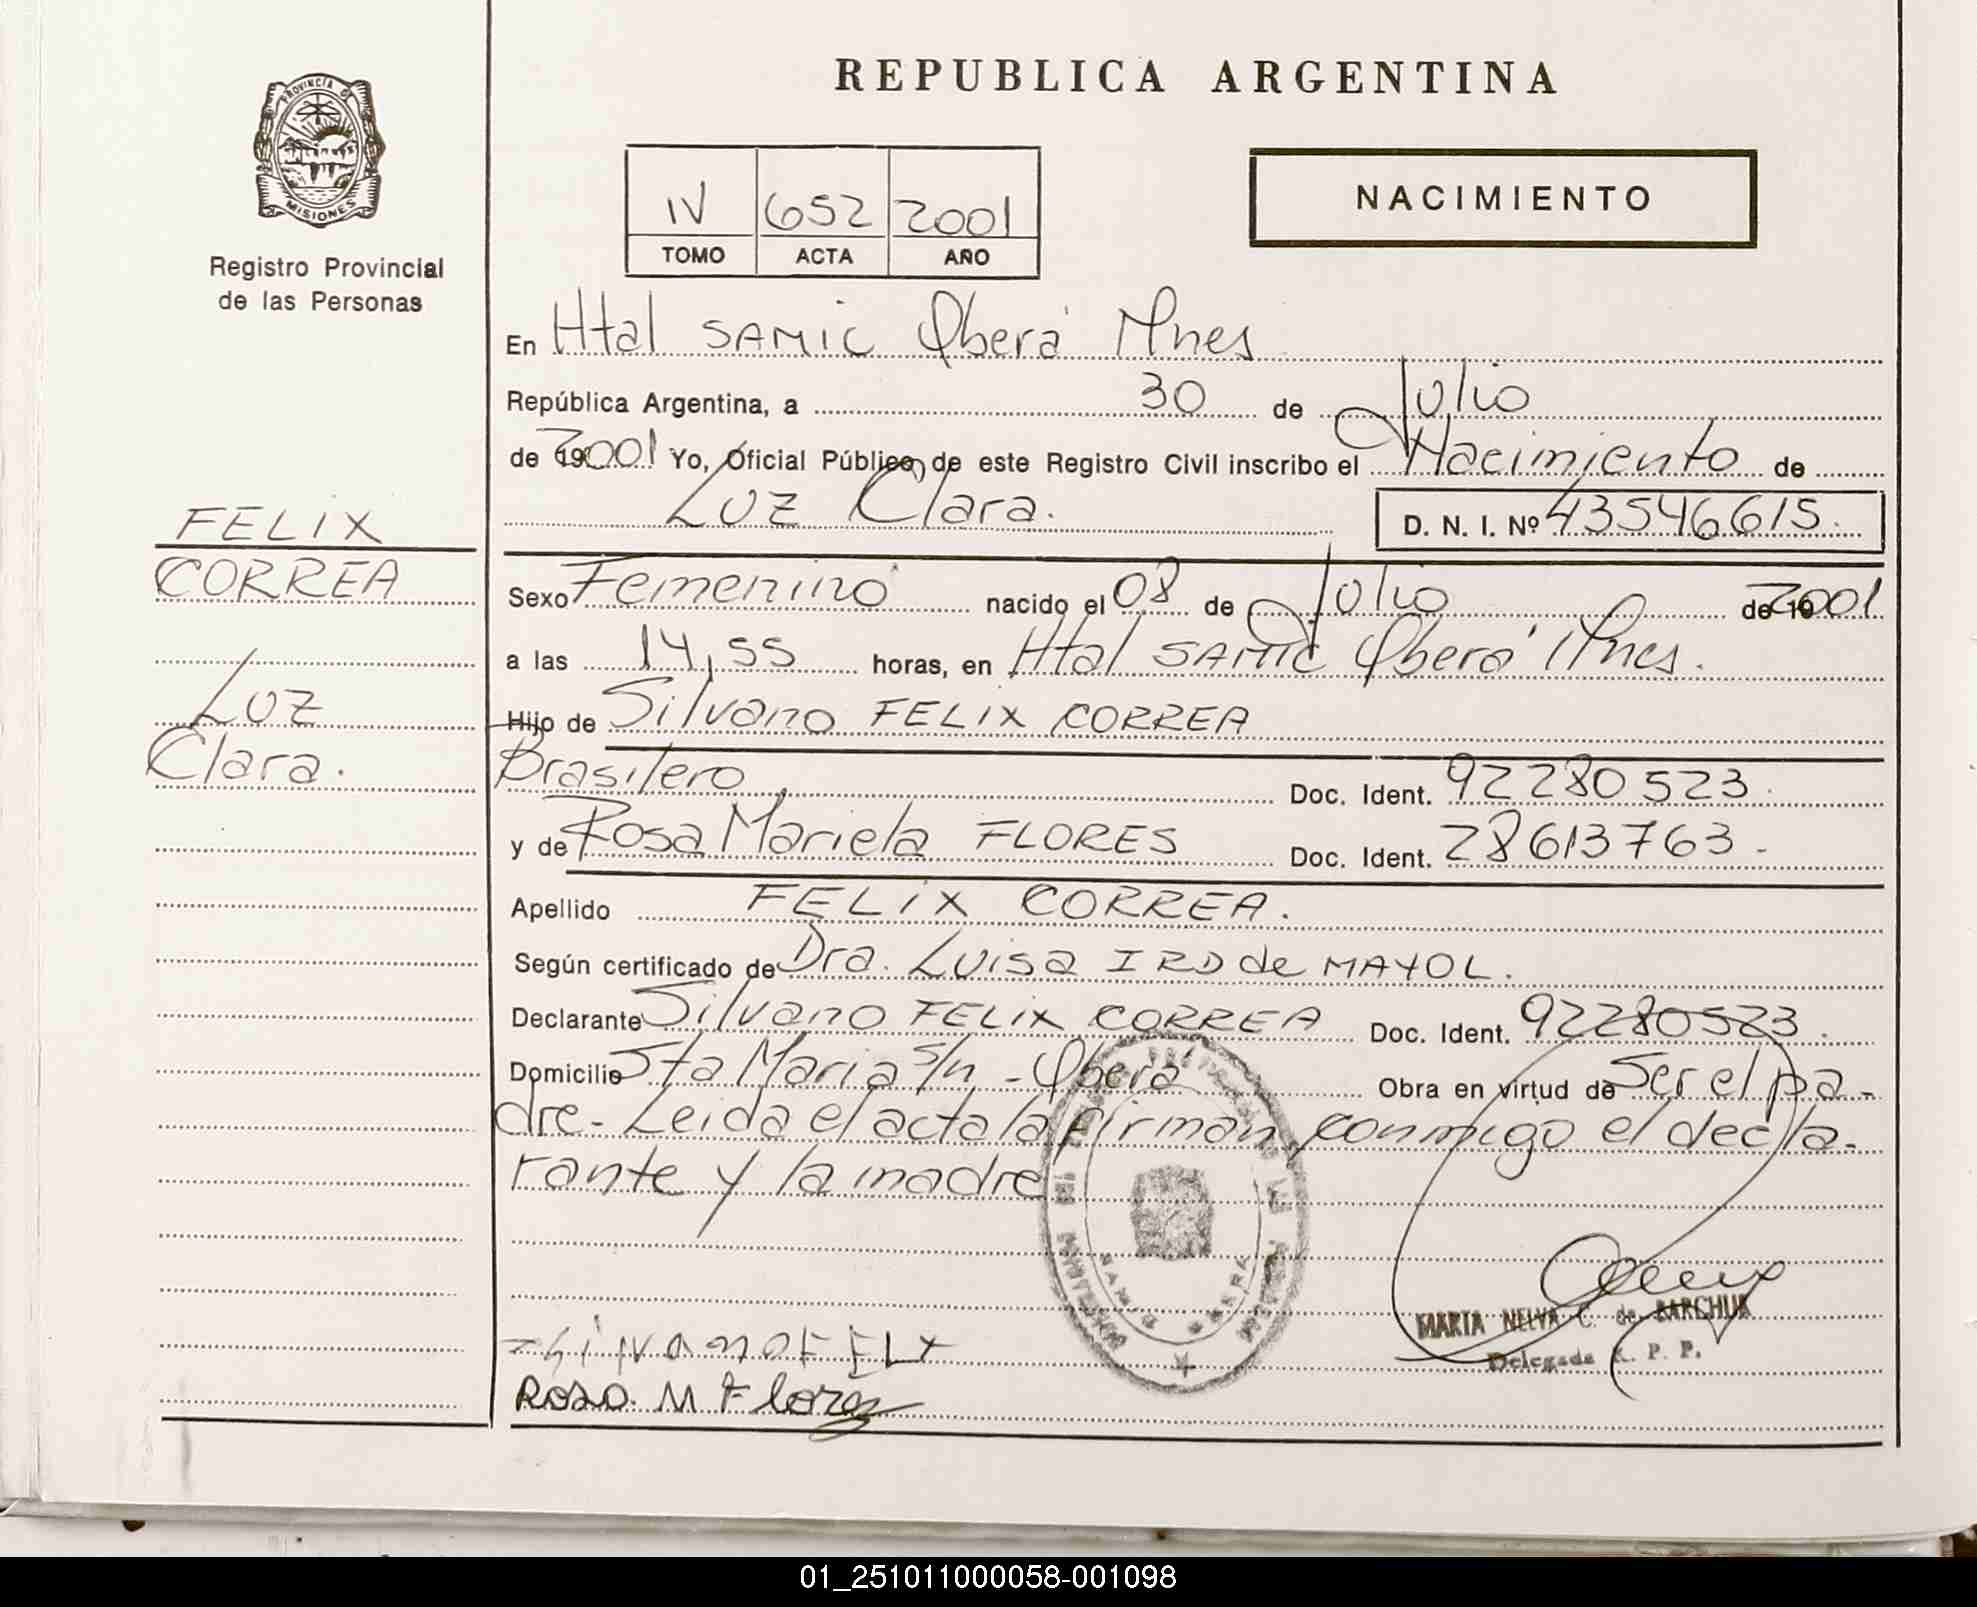 REPUBLICA ARGENTINA
PROVINCIA DE
MISIONES
Registro Provincial
de las Personas
IV 652 2001
TOMO ACTA AÑO
NACIMIENTO
En Htal SAMIC Oberá Mnes
República Argentina, a 30 de Julio
de 19 2001 Yo, Oficial Público, de este Registro Civil inscribo el Nacimiento de
Luz Clara. D. N. I. Nº 43546615.
FELIX
CORREA
Luz
Clara.
Sexo Femenino nacido el 08 de Julio de 19 2001
a las 14,55 horas, en Htal SAMIC Oberá Mnes.
Hijo de Silvano FELIX CORREA
Brasilero Doc. Ident. 92280523.
y de Rosa Mariela FLORES Doc. Ident. 28613763-
Apellido FELIX CORREA.
Según certificado de Dra. Luisa IRD de MAYOL.
Declarante Silvano FELIX CORREA Doc. Ident. 92280523.
Domicilio Sta Maria s/n - Oberá Obra en virtud de Ser el pa-
dre- Leida el acta la firman conmigo el decla-
rante y la madre
MARTA NELVA C. de BARCHUK
Delegada R. P. P.
Rosa. M Flores
01_251011000058-001098